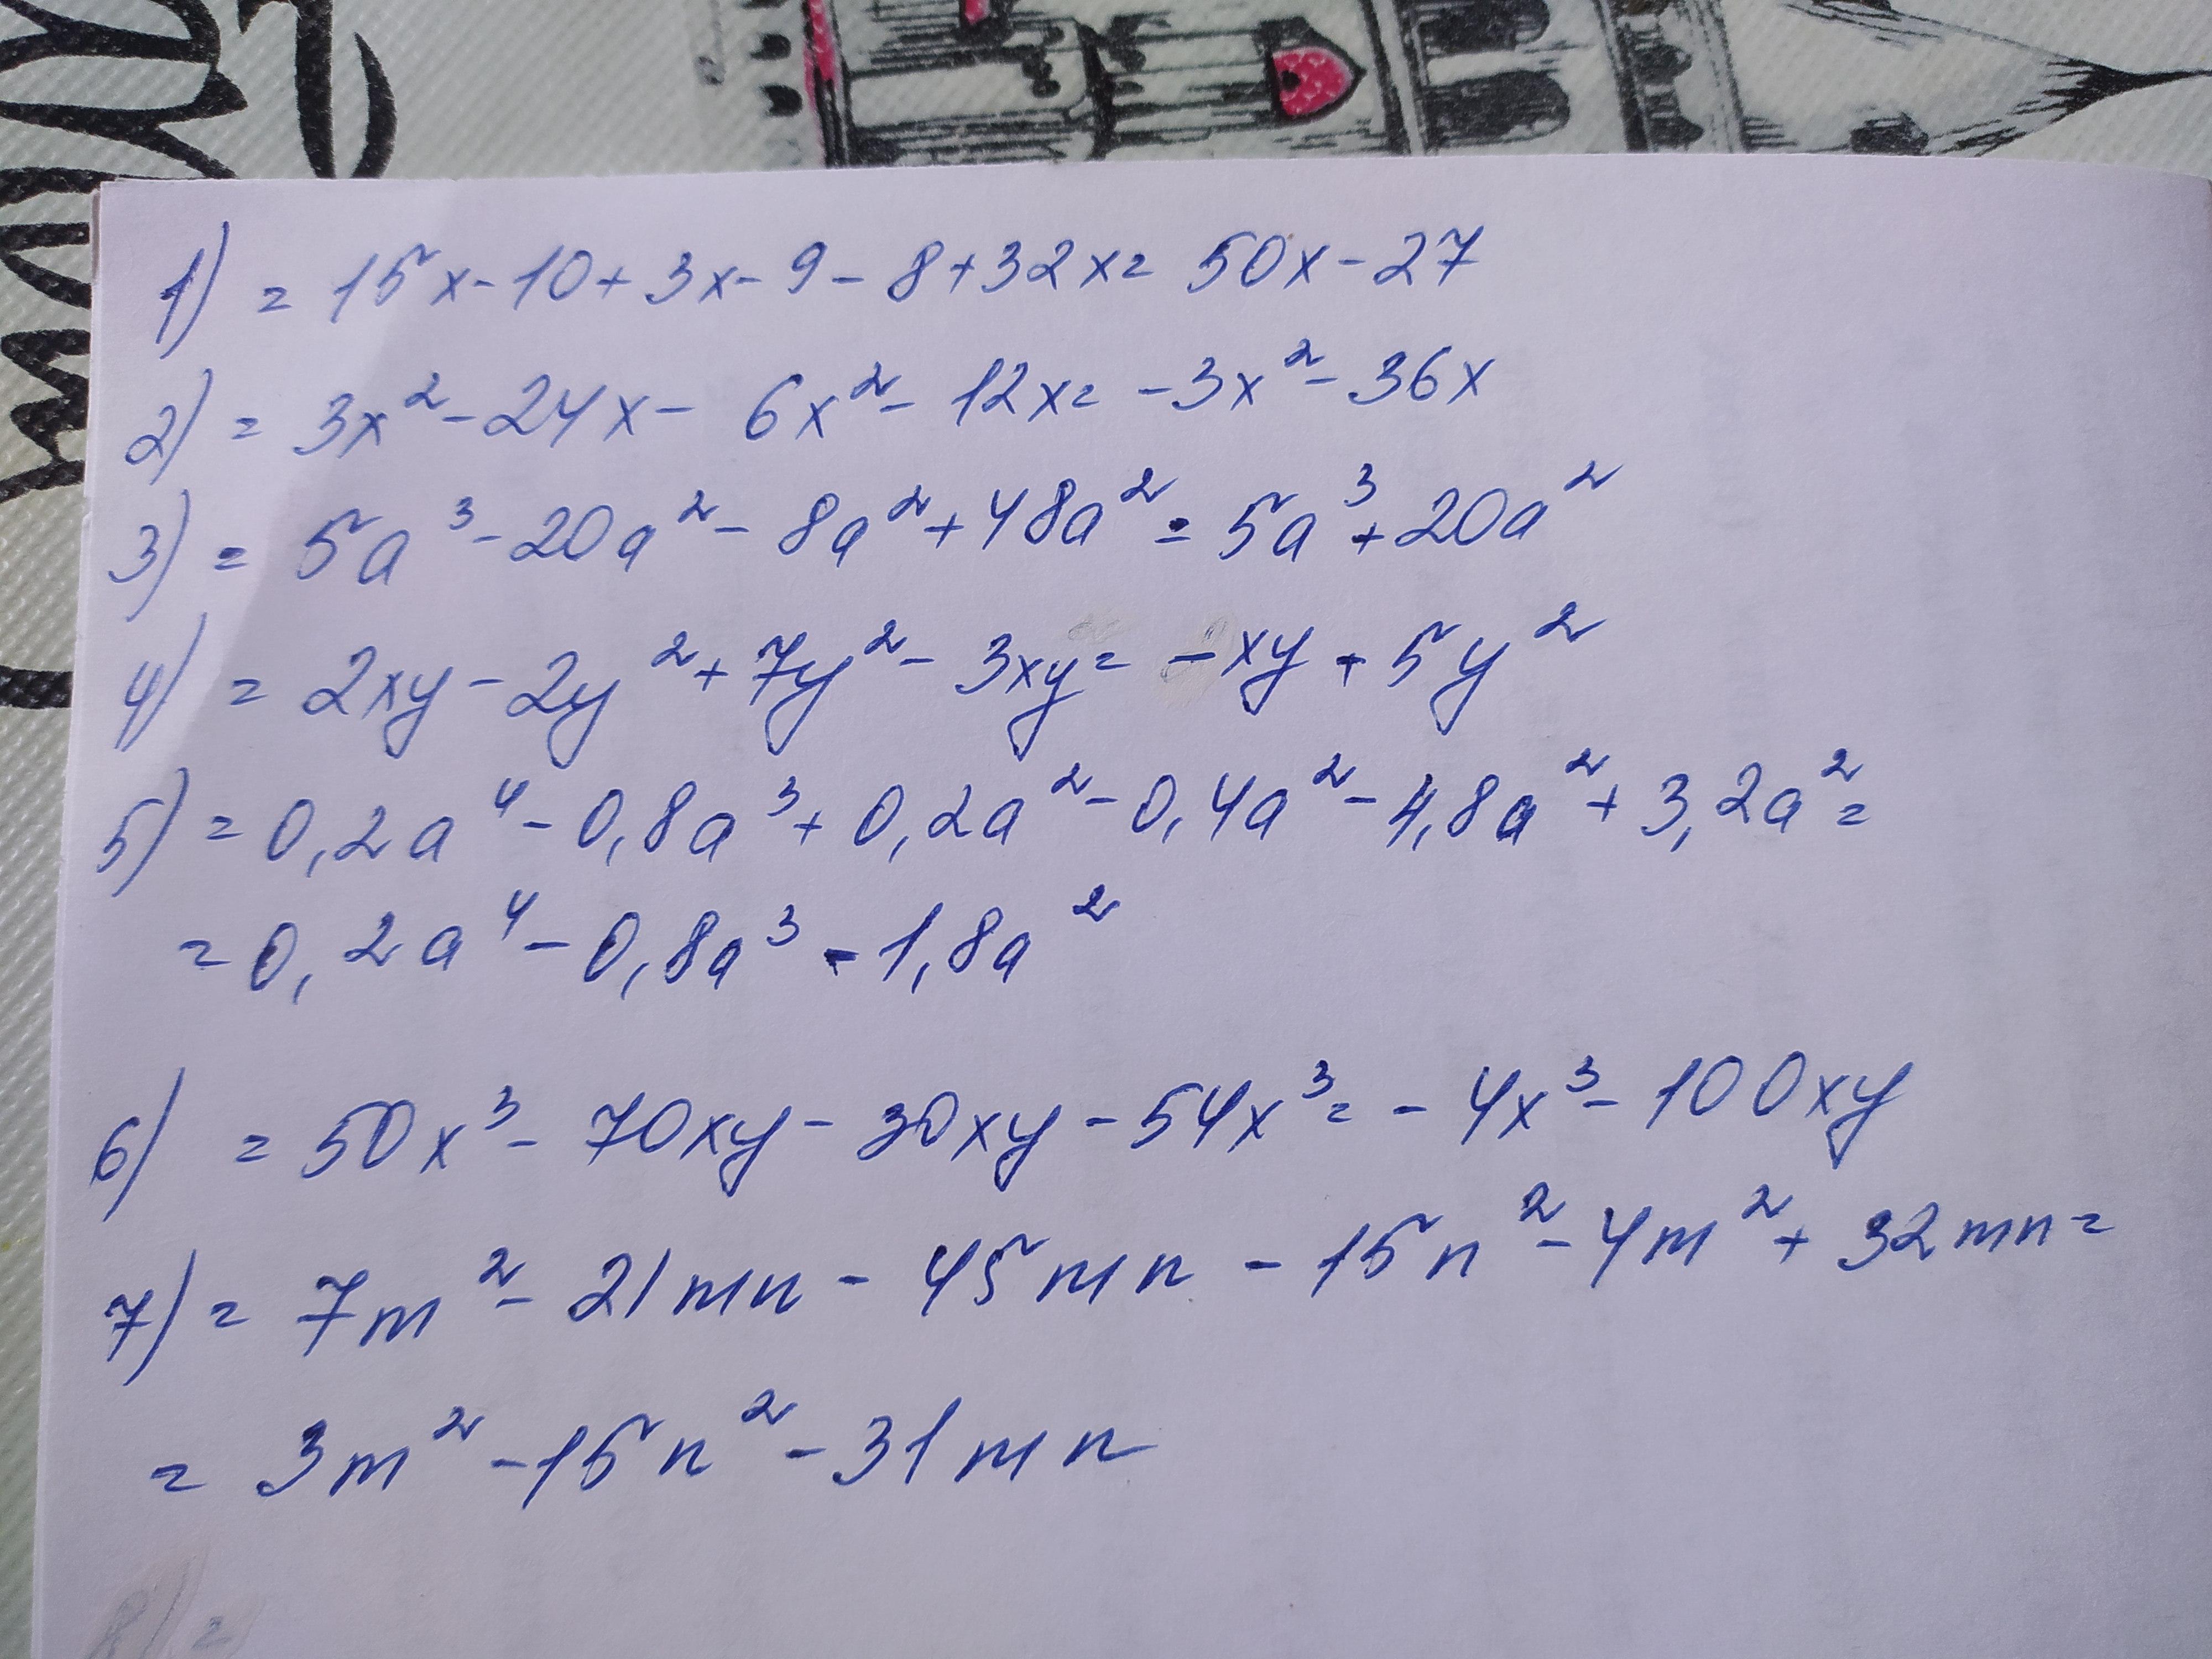 1) = 15x - 10 + 3x - 9 - 8 + 32x = 50x - 27
2) = 3x² - 24x - 6x² - 12x = -3x² - 36x
3) = 5a³ - 20a² - 8a² + 48a² = 5a³ + 20a²
4) = 2xy - 2y² + 7y² - 3xy = -xy + 5y²
5) = 0,2a⁴ - 0,8a³ + 0,2a² - 0,4a² - 4,8a² + 3,2a² =
= 0,2a⁴ - 0,8a³ - 1,8a²
6) = 50x³ - 70xy - 30xy - 54x³ = -4x³ - 100xy
7) = 7m² - 21mn - 45mn - 15n² - 4m² + 32mn =
= 3m² - 15n² - 31mn